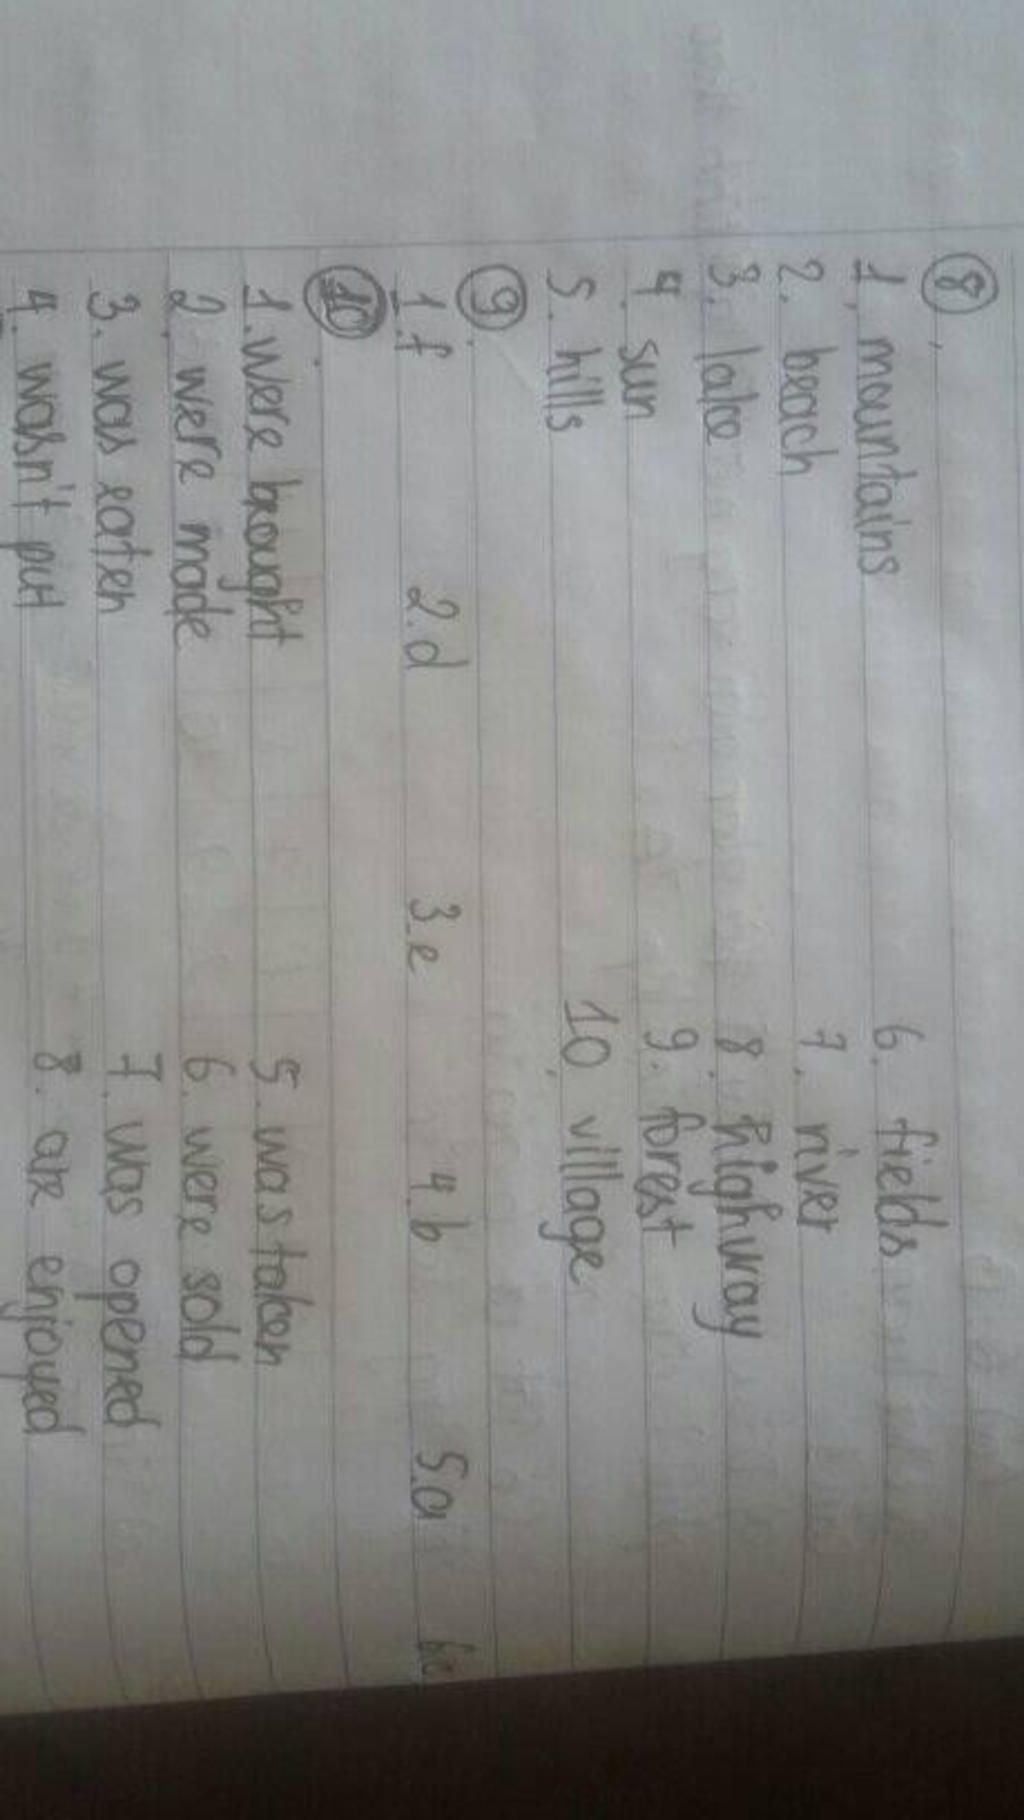 8
1. mountains 6. fields
2. beach 7. river
3. lake 8. highway
4. sun 9. forest
5. hills 10. village
9
1. f 2. d 3. e 4. b 5. a 6c
10
1. were brought 5. was taken
2. were made 6. were sold
3. was eaten 7. was opened
4. wasn't put 8. are enjoyed